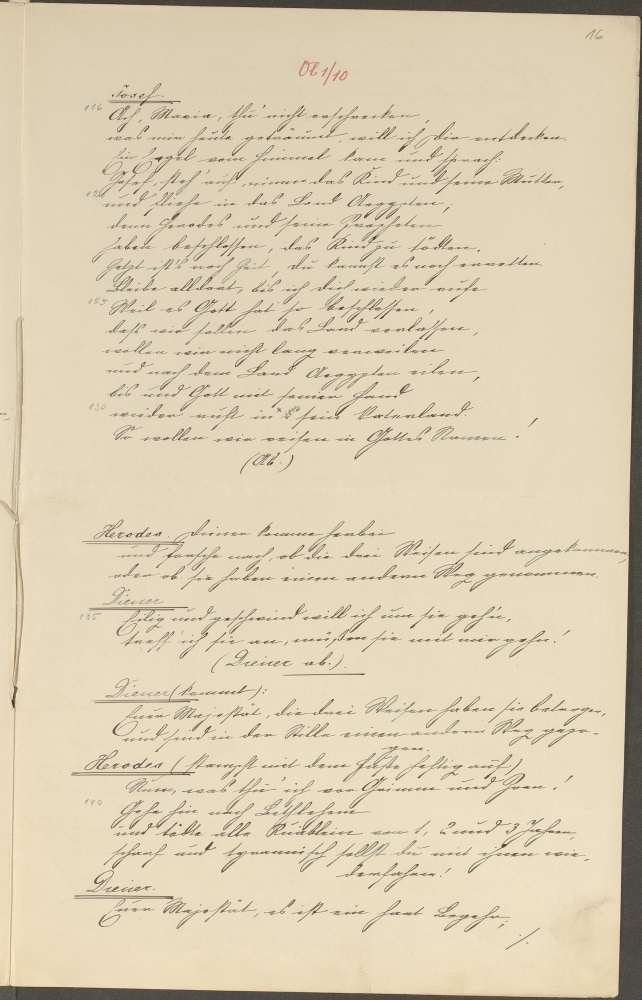 16
Ob 1/10
Josef.
116 Ach, Maria, thu' nicht erschrecken,
was mir heute geträumt, will ich Dir entdecken.
Ein Engel vom Himmel kam und sprach:
Josef, steh' auf, nimm das Kind und seine Mutter,
und fliehe in das Land Aegypten;
denn Herodes und seine
haben beschlossen, das Kind zu tödten.
Jetzt ist's noch Zeit, du kannst es noch erretten.
Bleibe alldort, bis ich dich wieder rufe
Weil es Gott hat so beschlossen,
daß wir sollen das Land verlassen,
wollen wir nicht lang verweilen
und nach dem Land Aegypten eilen,
bis uns Gott mit seiner Hand
130 wieder ruft in sein Vaterland.
So wollen wir reisen in Gottes Namen!
(Ab.)
Herodes. Diener komme herbei
und forsche nach, ob die drei Weisen sind angekommen,
oder ob sie haben einen andern Weg genommen.
Diener
135 Eilig und geschwind will ich um sie geh'n,
treff' ich sie an, müssen sie mit mir gehn!
(Diener ab.)
Diener (kommt):
Euer Majestät, die drei Weisen haben sie betrogen,
und sind in der Stille einen andern Weg gezo-
gen.
Herodes (stampft mit dem Fuße heftig auf)
Nun, was thu' ich vor Grimm und Zorn!
140 Gehe hin nach Bethlehem
und tödte alle Knäblein von 1, 2 und 3 Jahren,
scharf und tyrannisch sollst du mit ihnen wie-
derfahren!
Diener.
Euer Majestät, es ist ein hart Begehr,
./.